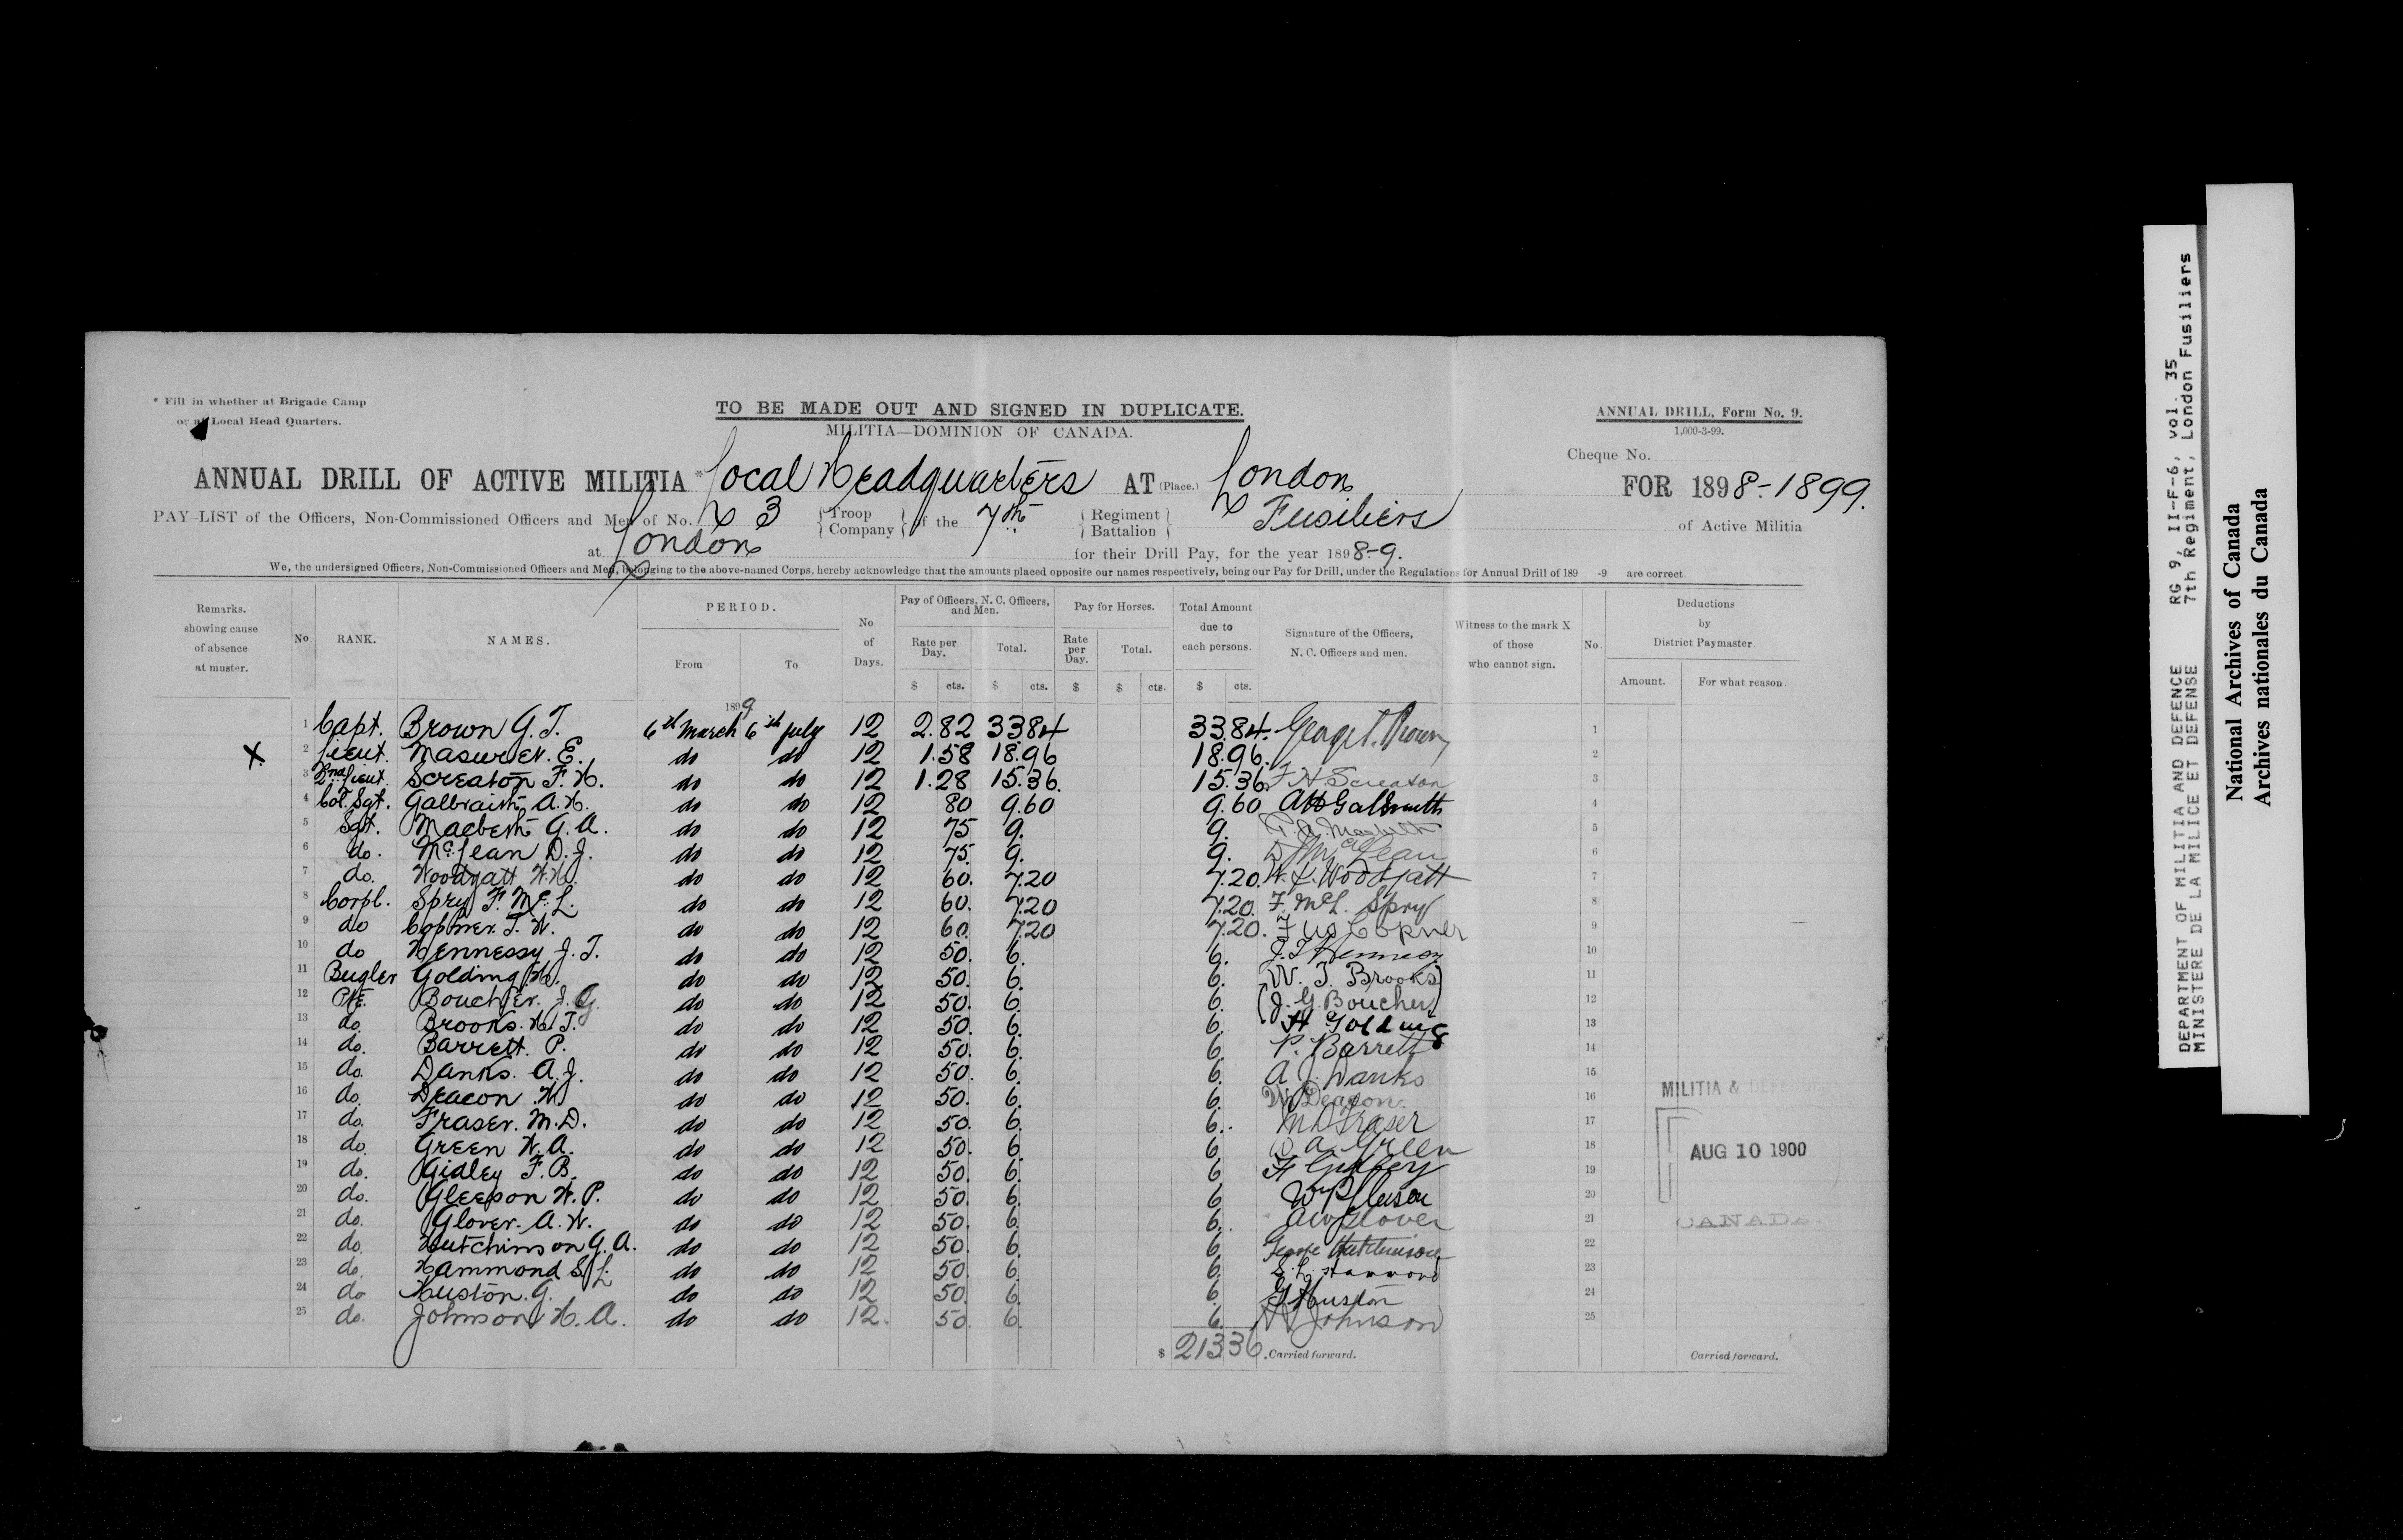 * Fill in whether at Brigade Camp
or at Local Head Quarters.
TO BE MADE OUT AND SIGNED IN DUPLICATE.
MILITIA—DOMINION OF CANADA.
ANNUAL DRILL, Form No. 9.
1,000-3-99.
Cheque No.
ANNUAL DRILL OF ACTIVE MILITIA * Local Headquarters AT (Place.) London FOR 1898-1899.
PAY-LIST of the Officers, Non-Commissioned Officers and Men of No. 3 { Troop Company } of the 7th { Regiment Battalion } Fusiliers of Active Militia
at London for their Drill Pay, for the year 1898-9.
We, the undersigned Officers, Non-Commissioned Officers and Men, belonging to the above-named Corps, hereby acknowledge that the amounts placed opposite our names respectively, being our Pay for Drill, under the Regulations for Annual Drill of 189 -9 are correct.
Remarks. showing cause of absence at muster. No. RANK. NAMES. PERIOD. From To No of Days. Pay of Officers, N. C. Officers, and Men. Rate per Day. $ cts. Total. $ cts. Pay for Horses. Rate per Day. $ Total. $ cts. Total Amount due to each persons. $ cts. Signature of the Officers, N. C. Officers and men. Witness to the mark X of those who cannot sign. No. Deductions by District Paymaster Amount. For what reason.
1899
1 Capt. Brown G. T. 6th March 6th July 12 2.82 33 84 33.84. George T. Brown 1
X 2 Lieut. Masuret. E. do do 12 1.58 18.96 18.96. 2
3 2nd Lieut. Screaton F. H. do do 12 1.28 15.36. 15.36 F H Screaton 3
4 Col. Sgt. Galbraith A. H. do do 12 80 9.60 9.60 A H Galbraith 4
5 Sgt. Macbeth G. A. do do 12 75 9. 9. G. A. Macbeth 5
6 do. McLean D. J. do do 12 75 9. 9. D J McLean 6
7 do. Woodyatt W. H. do do 12 60. 7.20 7.20. W. H. Woodyatt 7
8 Corpl. Spry F. McL. do do 12 60. 7.20 7.20. F. McL. Spry 8
9 do Copner. F. W. do do 12 60. 7.20 7.20. F W Copner 9
10 do Hennessy J. T. do do 12 50. 6. 6. J. T Hennessy 10
11 Bugler Golding H. do do 12 50. 6. 6. (W. T. Brooks) 11
12 Pte. Boucher. J. G. do do 12 50. 6. 6. (J. G. Boucher) 12
13 do. Brooks. W. T. do do 12 50. 6. 6. H Golding 13
14 do. Barrett. P. do do 12 50. 6. 6. P. Barrett 14
15 do. Danks. A. J. do do 12 50. 6. 6. A J Danks 15
16 do. Deacon W. do do 12 50. 6. 6. W Deacon. 16
17 do. Fraser. M. D. do do 12 50. 6. 6. M D Fraser 17
18 do. Green W. A. do do 12 50. 6. 6 W. A. Green 18
19 do. Gidley F. B. do do 12 50. 6. 6 F Gidley 19
20 do. Gleeson W. P. do do 12 50. 6. 6 W P Gleeson 20
21 do. Glover. A. W. do do 12 50. 6. 6. A W Glover 21
22 do. Hutchinson G. A. do do 12 50. 6. 6 George Hutchinson 22
23 do. Hammond S. L. do do 12 50. 6. 6. S. L. Hammond 23
24 do Huston. G. do do 12 50. 6. 6. G Huston 24
25 do. Johnson H. A. do do 12. 50. 6. 6. H A Johnson 25
$ 213 36. Carried forward. Carried forward.
MILITIA & DEFENCE
AUG 10 1900
CANADA.
DEPARTMENT OF MILITIA AND DEFENCE RG 9, II-F-6, vol. 35
MINISTERE DE LA MILICE ET DEFENSE 7th Regiment, London Fusiliers
National Archives of Canada
Archives nationales du Canada